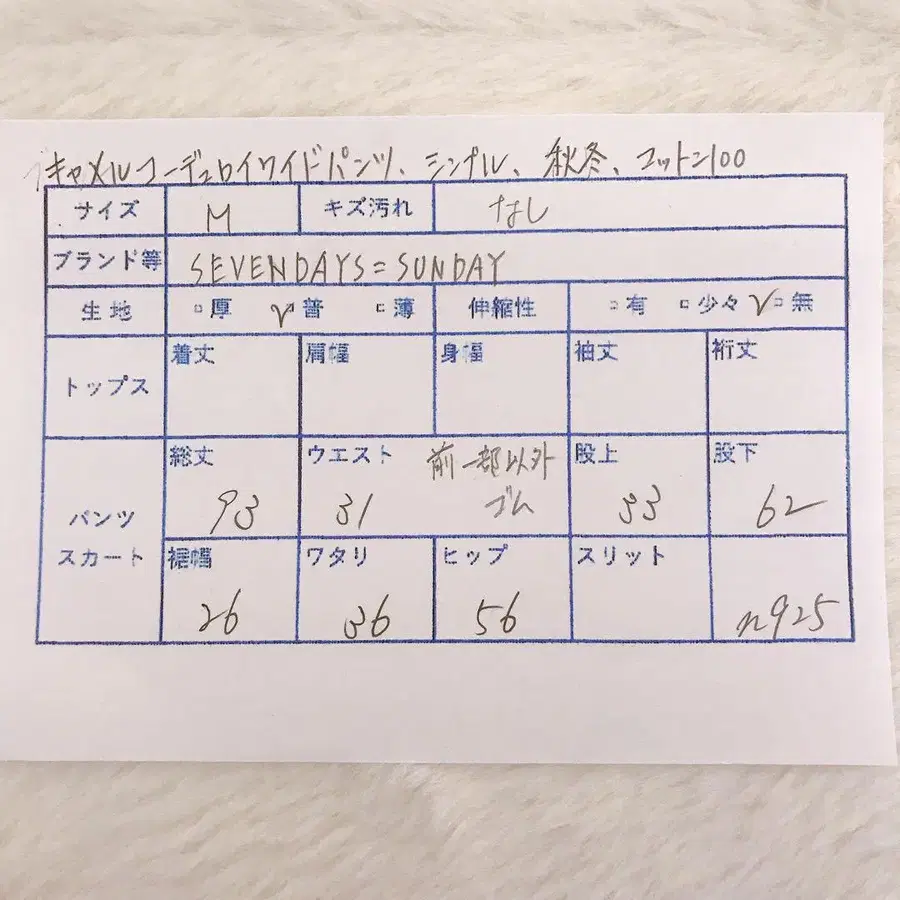 キャメルコーデュロイワイドパンツ、シンプル、秋冬、コットン100
サイズ M キズ汚れ なし
ブランド等 SEVENDAYS=SUNDAY
生地 □厚 ☑普 □薄 伸縮性 □有 □少々 ☑無
トップス 着丈 肩幅 身幅 袖丈 裄丈
パンツ スカート
総丈 ウエスト 前一部以外ゴム 股上 股下
93 31 33 62
裾幅 ワタリ ヒップ スリット
26 36 56 n925